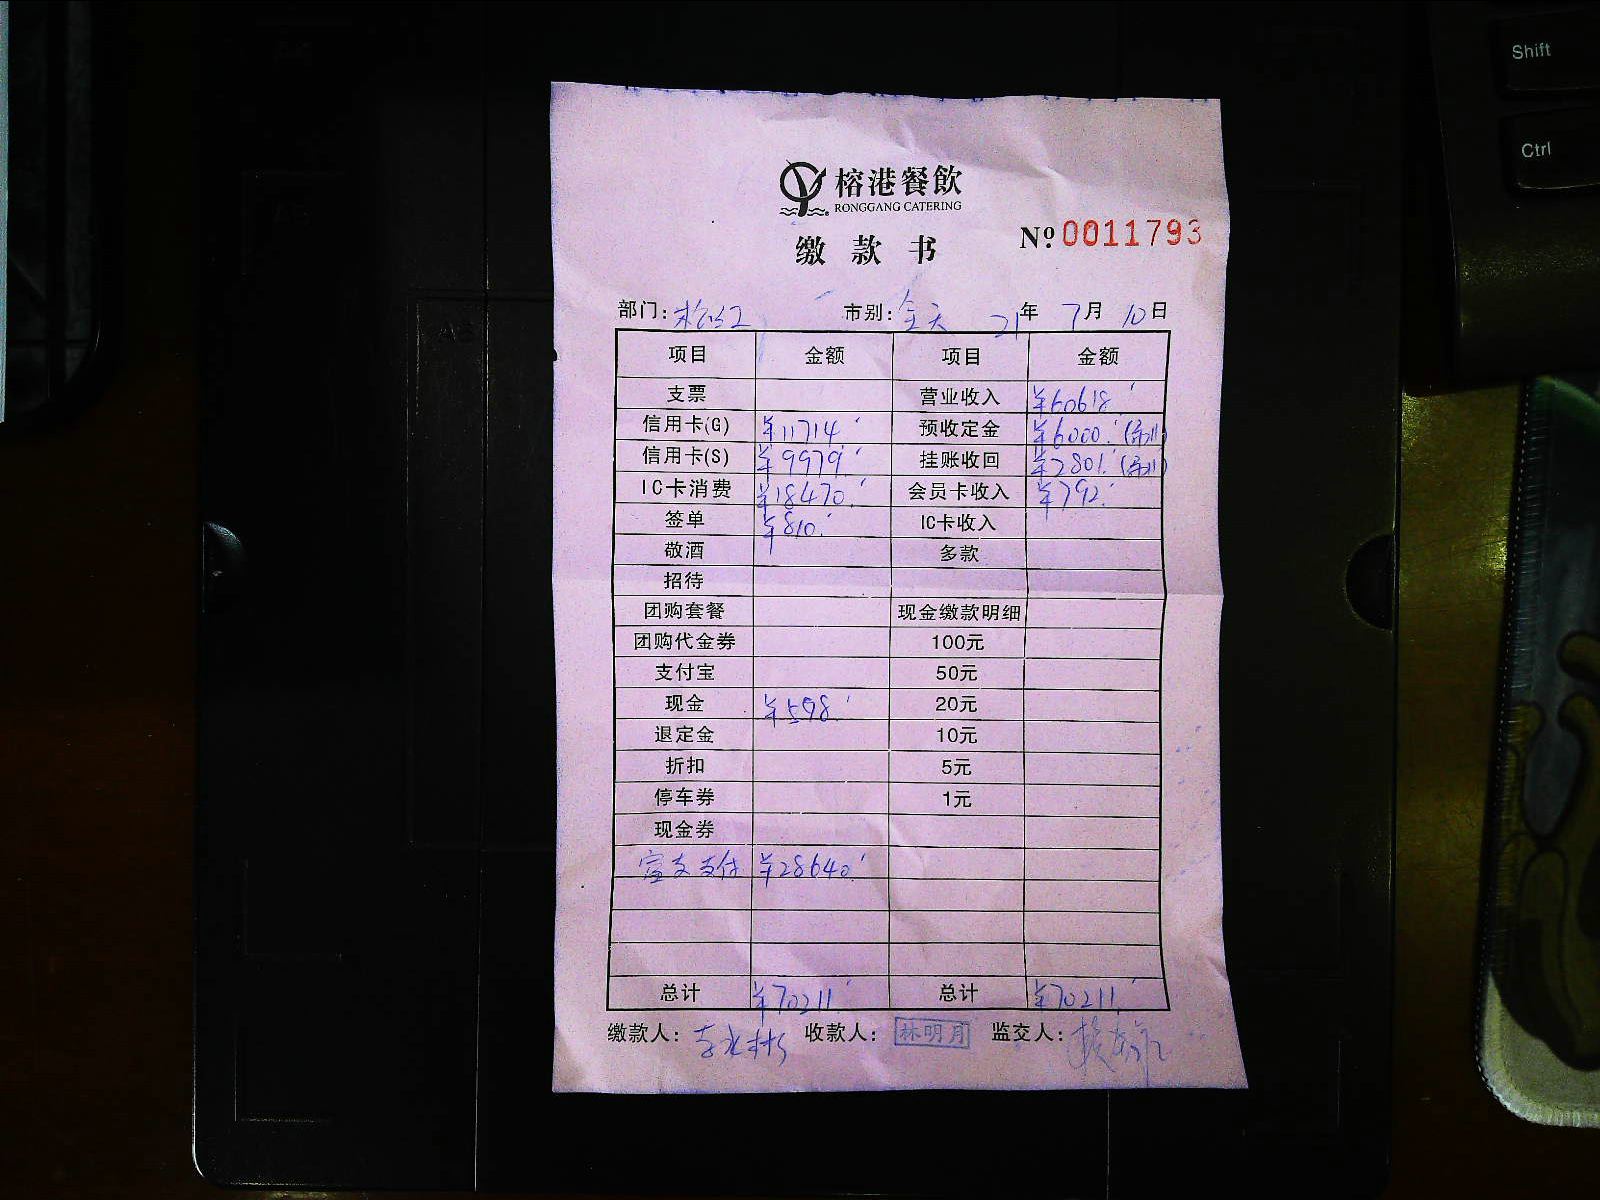 榕港餐飲
RONGGANG CATERING
缴款书
№ 0011793
部门: 市别: 全天 21年 7月 10日
项目 金额 项目 金额
支票 营业收入 ¥60618
信用卡(G) ¥11714 预收定金 ¥6000
信用卡(S) ¥9979 挂账收回 ¥2801
IC卡消费 ¥18470 会员卡收入 ¥792
签单 ¥810 IC卡收入
敬酒 多款
招待
团购套餐 现金缴款明细
团购代金券 100元
支付宝 50元
现金 ¥598 20元
退定金 10元
折扣 5元
停车券 1元
现金券
支付 ¥28640
总计 ¥70211 总计 ¥70211
缴款人: 收款人: 林明月 监交人:
Shift
Ctrl